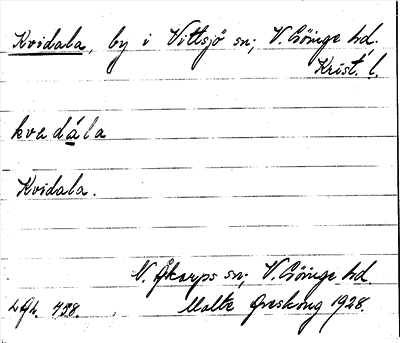 Kvidala, by i Vittsjö sn; V. Göinge hd.
Krist. l.
kvedála
Kvidala.
N. Åkarps sn; V. Göinge hd.
Malte 1928.